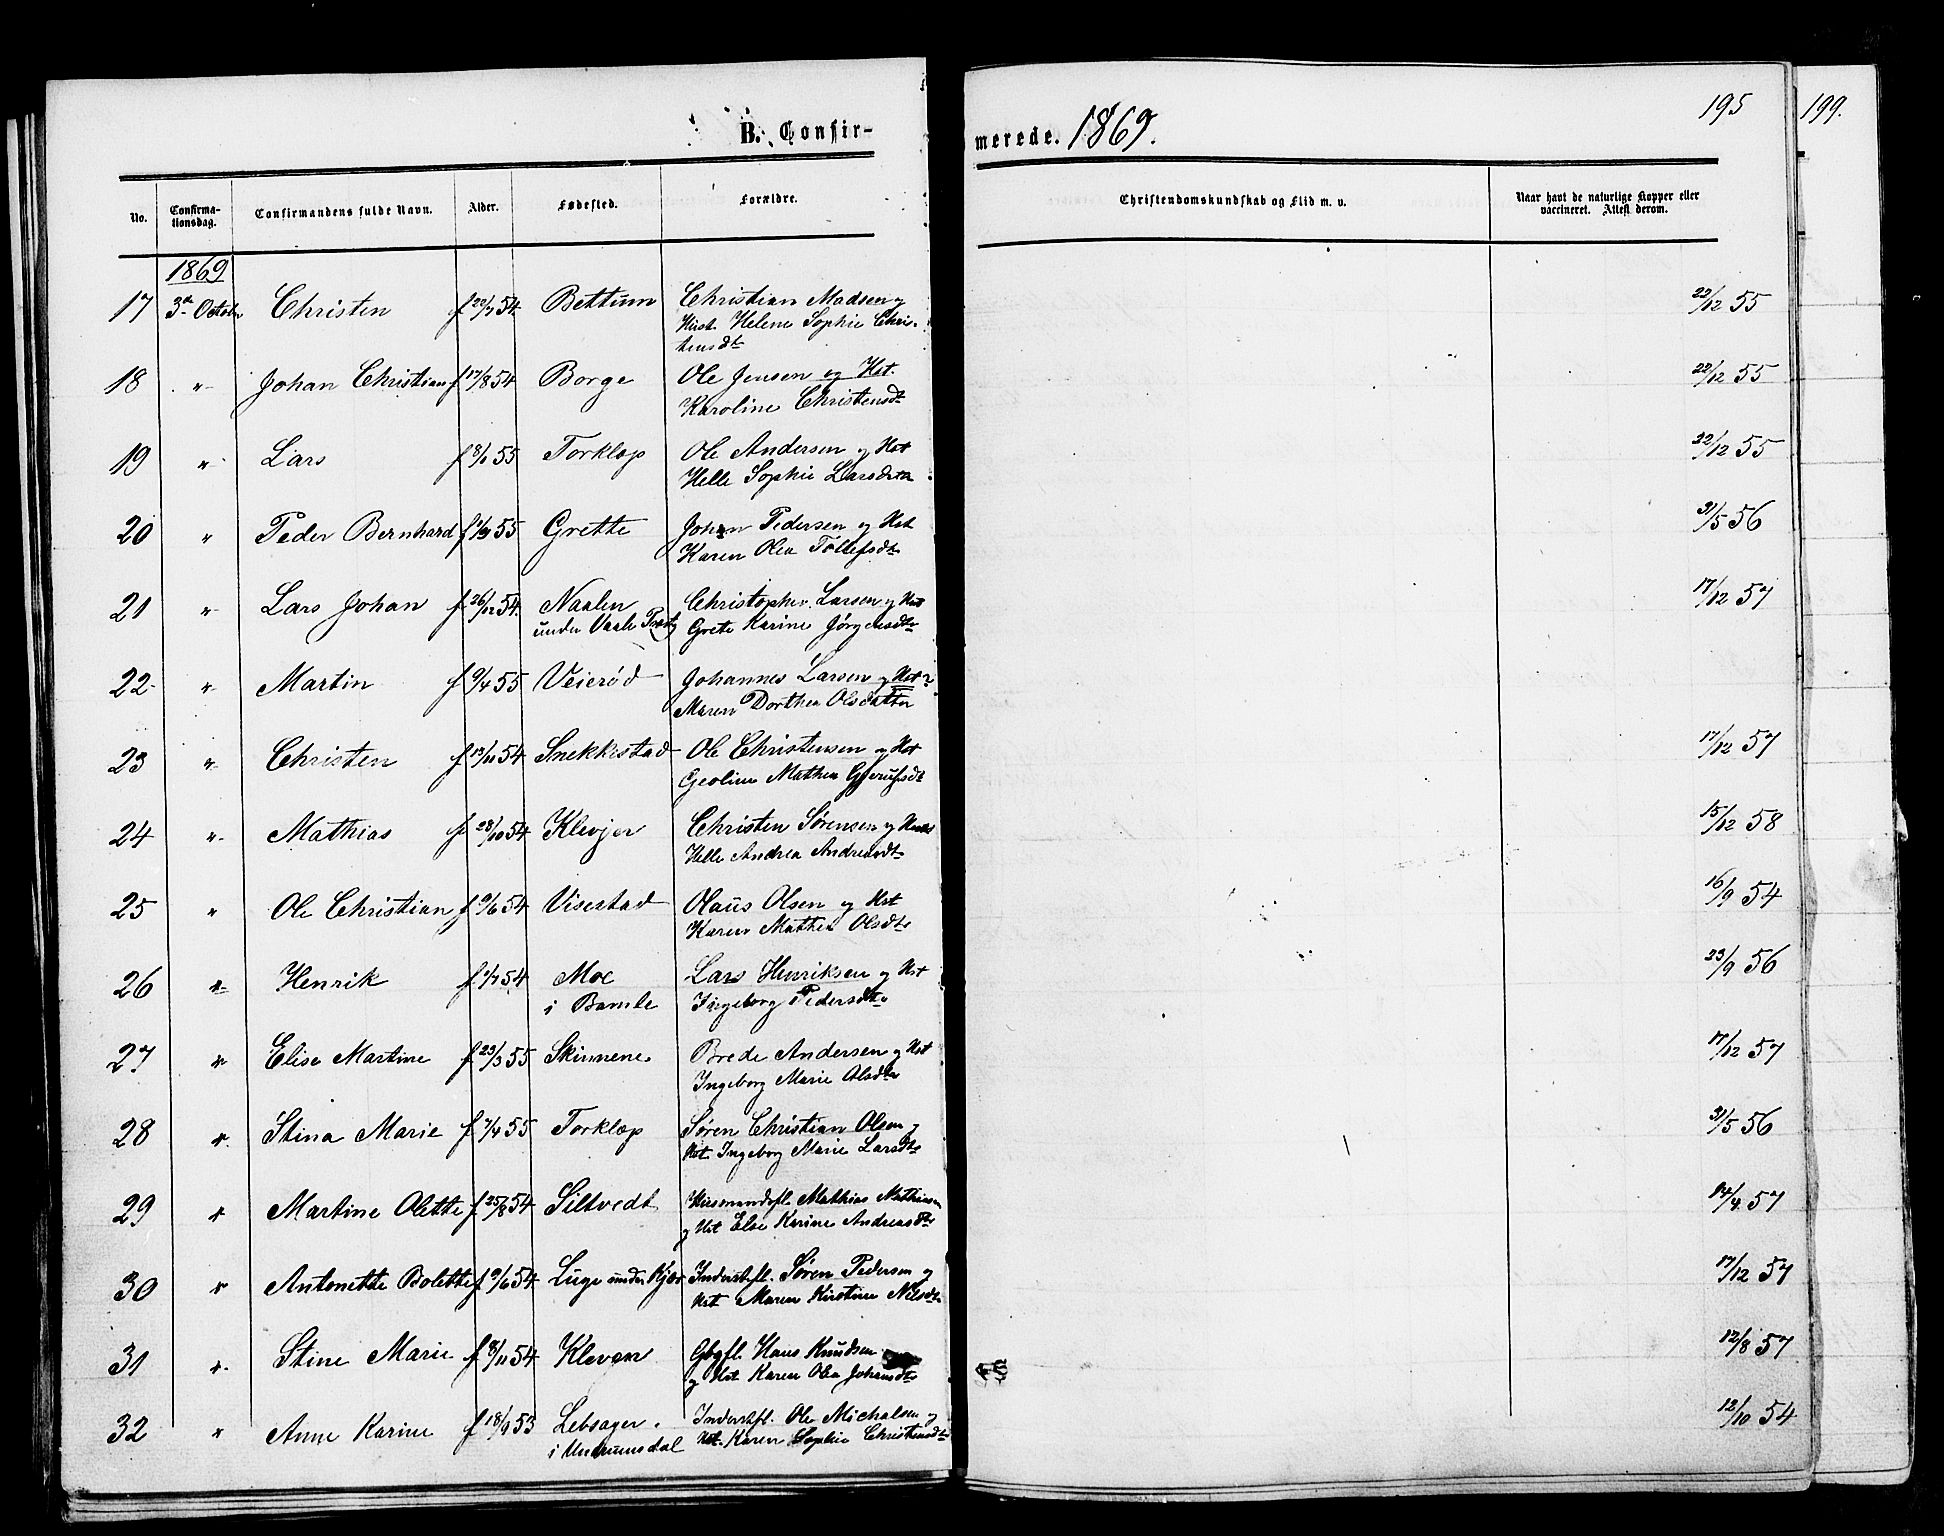 B. Confir-
merede. 1869.
195
199.
No.
Confirma-
tionsdag.
Confirmandens fulde Navn.
Alder.
Fødested.
Forældre.
Christendomskundskab og Flid m. v.
Naar havt de naturlige Kopper eller
vaccineret. Attest derom.
1869
17 3de Octobr Christen f 22/3 54. Bettum Christian Madsen og 22/12 55
Hust. Helene Sophie Chri-
stensdt
18 " Johan Christian f 17/8 54 Borge Ole Jensen og Hst. 22/12 55
Karoline Christensdt
19 " Lars f 8/1 55 Torklep Ole Andersen og Hst 22/12 55
Helle Sophie Larsdttr
20 " Peder Bernhard f 1/3 55 Grette Johan Pedersen og Hst 31/5 56
Karen Olea Tollefsdt
21 " Lars Johan f 26/12 54. Naalen Christopher Larsen og Hst 17/12 57
under Vaale Præstg Grete Karine Jørgensdtr
22 " Martin f 9/4 55 Veierød Johannes Larsen og Hst
Maren Dorthea Olsdatter
23 " Christen f 13/11 54 Snekkestad Ole Christensen og Hst 17/12 57
Geoline Mathea
24 " Mathias f 28/10 54 Klevjer Christen Sørensen og 15/12 58
Helle Andrea Andreasdt
25 " Ole Christian f 9/6 54 Viserstad Olaus Olsen og Hst 16/9 54
Karen Mathea Olsdt
26 " Henrik f 1/7 54 Moe Lars Henriksen og Hst 23/9 56
i Bamle Ingeborg Pedersdt
27 " Elise Martine f 23/3 55 Skinnene. Brede Andersen og Hst 17/12 57
Ingeborg Marie Olsdtr
28 " Stina Marie f 7/4 55 Torklep Søren Christian Olsen og 31/5 56
Hst. Ingeborg Marie Larsdt
29 " Martine Olette f 25/8 54 Siltvedt Huusmandsfl. Mathias Mathiasen 14/4 57
og Hst Else Karine Andreasdtr
30 " Antonette Bolette f 9/6 54 Luge under Kjær Inderstfl. Søren Pedersen og 17/12 57
Hst Maren Kirstine Nilsdt
31 " Stine Marie f 8/11 54 Kleven Gbgfl. Hans Knudsen 12/8 57
og Hst Karen Olea Johansdt
32 " Anne Karine f 18/9 53 Lebsager. Inderstfl. Ole Michalsen og 12/10 54
i Undrumsdal Hst. Karen Sophie Christensdtr